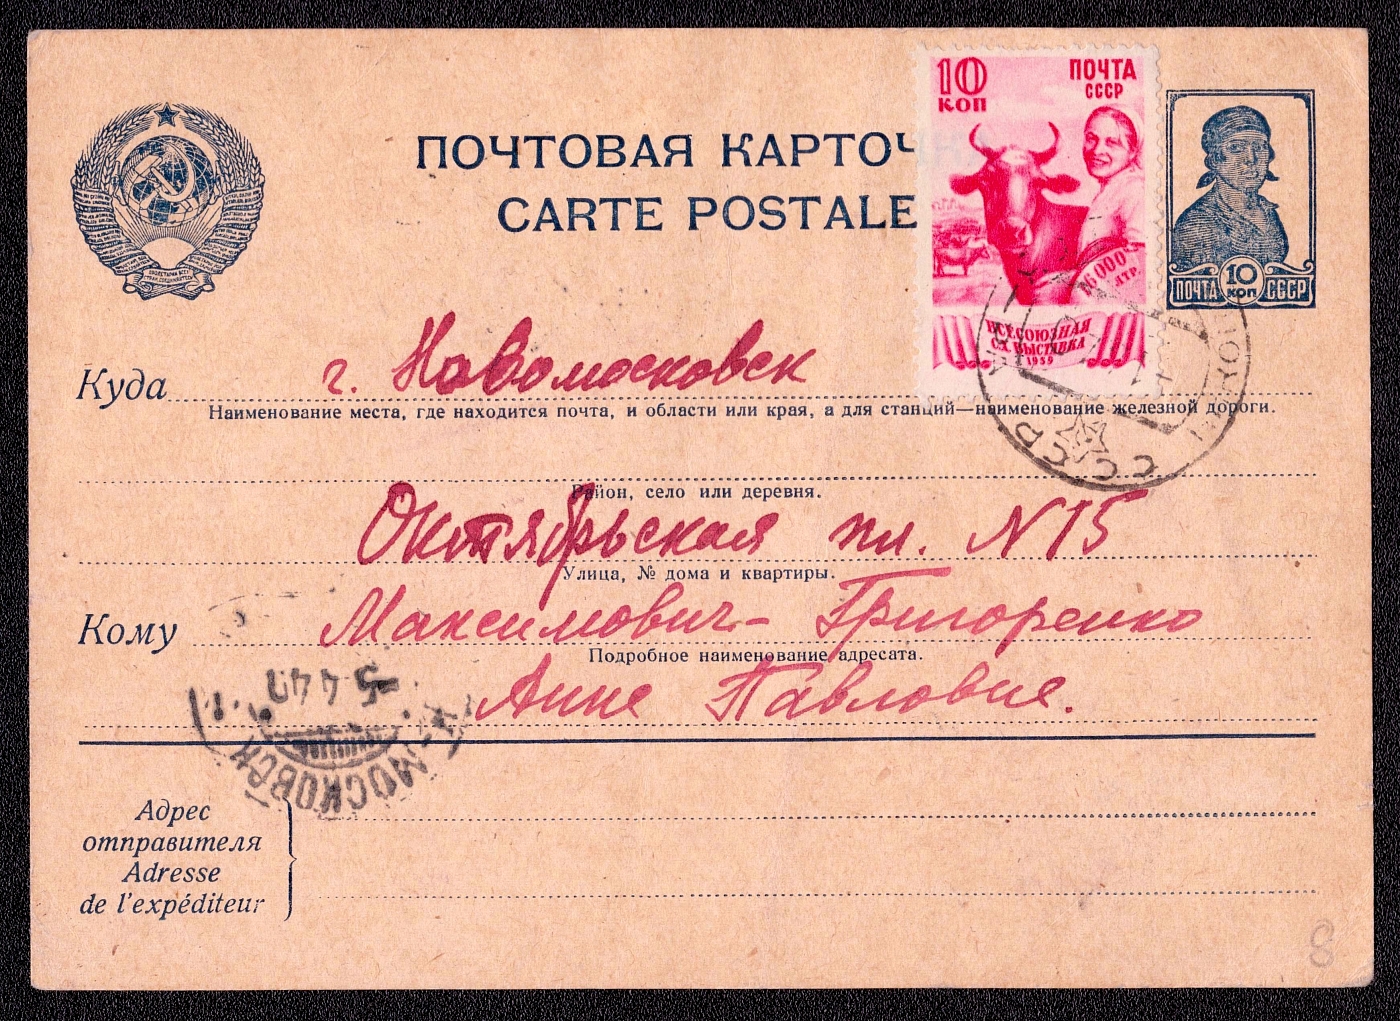 10
КОП
ПОЧТА
СССР
ПОЧТОВАЯ КАРТОЧ
CARTE POSTALE
16000
ЛТР.
ПОЧТА 10 КОП СССР
ВСЕСОЮЗНАЯ
С.Х. ВЫСТАВКА
1939
Куда г. Новомосковск
Наименование места, где находится почта, и области или края, а для станций—наименование железной дороги.
СССР
Район, село или деревня.
Октябрьская пл. N 15
Улица, № дома и квартиры.
Кому Максимович-Григоренко
Подробное наименование адресата.
Анне Павловне.
5 4 40
МОСКОВСК
Адрес
отправителя
Adresse
de l'expéditeur
8